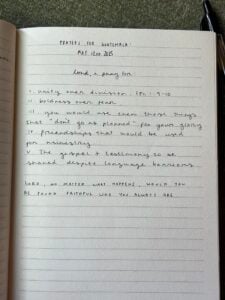 PRAYERS FOR GUATEMALA!
Lord, I pray for
I. unity over division.
II. boldness over fear
III. you would use even those things
that "don't go as planned" for your glory
IV. friendships that would be used
for ministry
V. The gospel + testimony to be
shared despite language barriers
LORD, NO MATTER WHAT HAPPENS, WOULD YOU
BE FOUND FAITHFUL LIKE YOU ALWAYS ARE